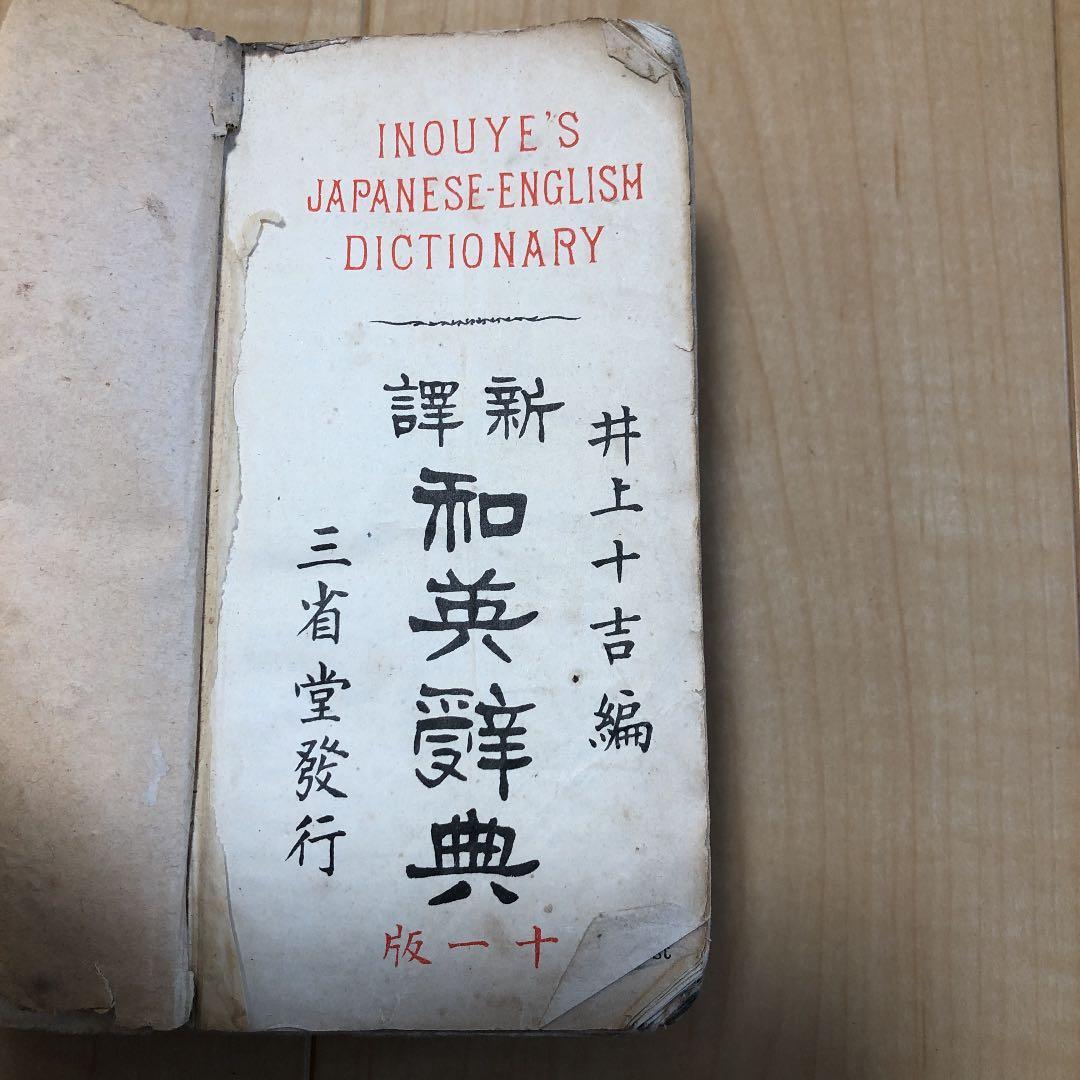 INOUYE'S
JAPANESE-ENGLISH
DICTIONARY
井上十吉編
新譯
和英辭典
三省堂發行
十一版